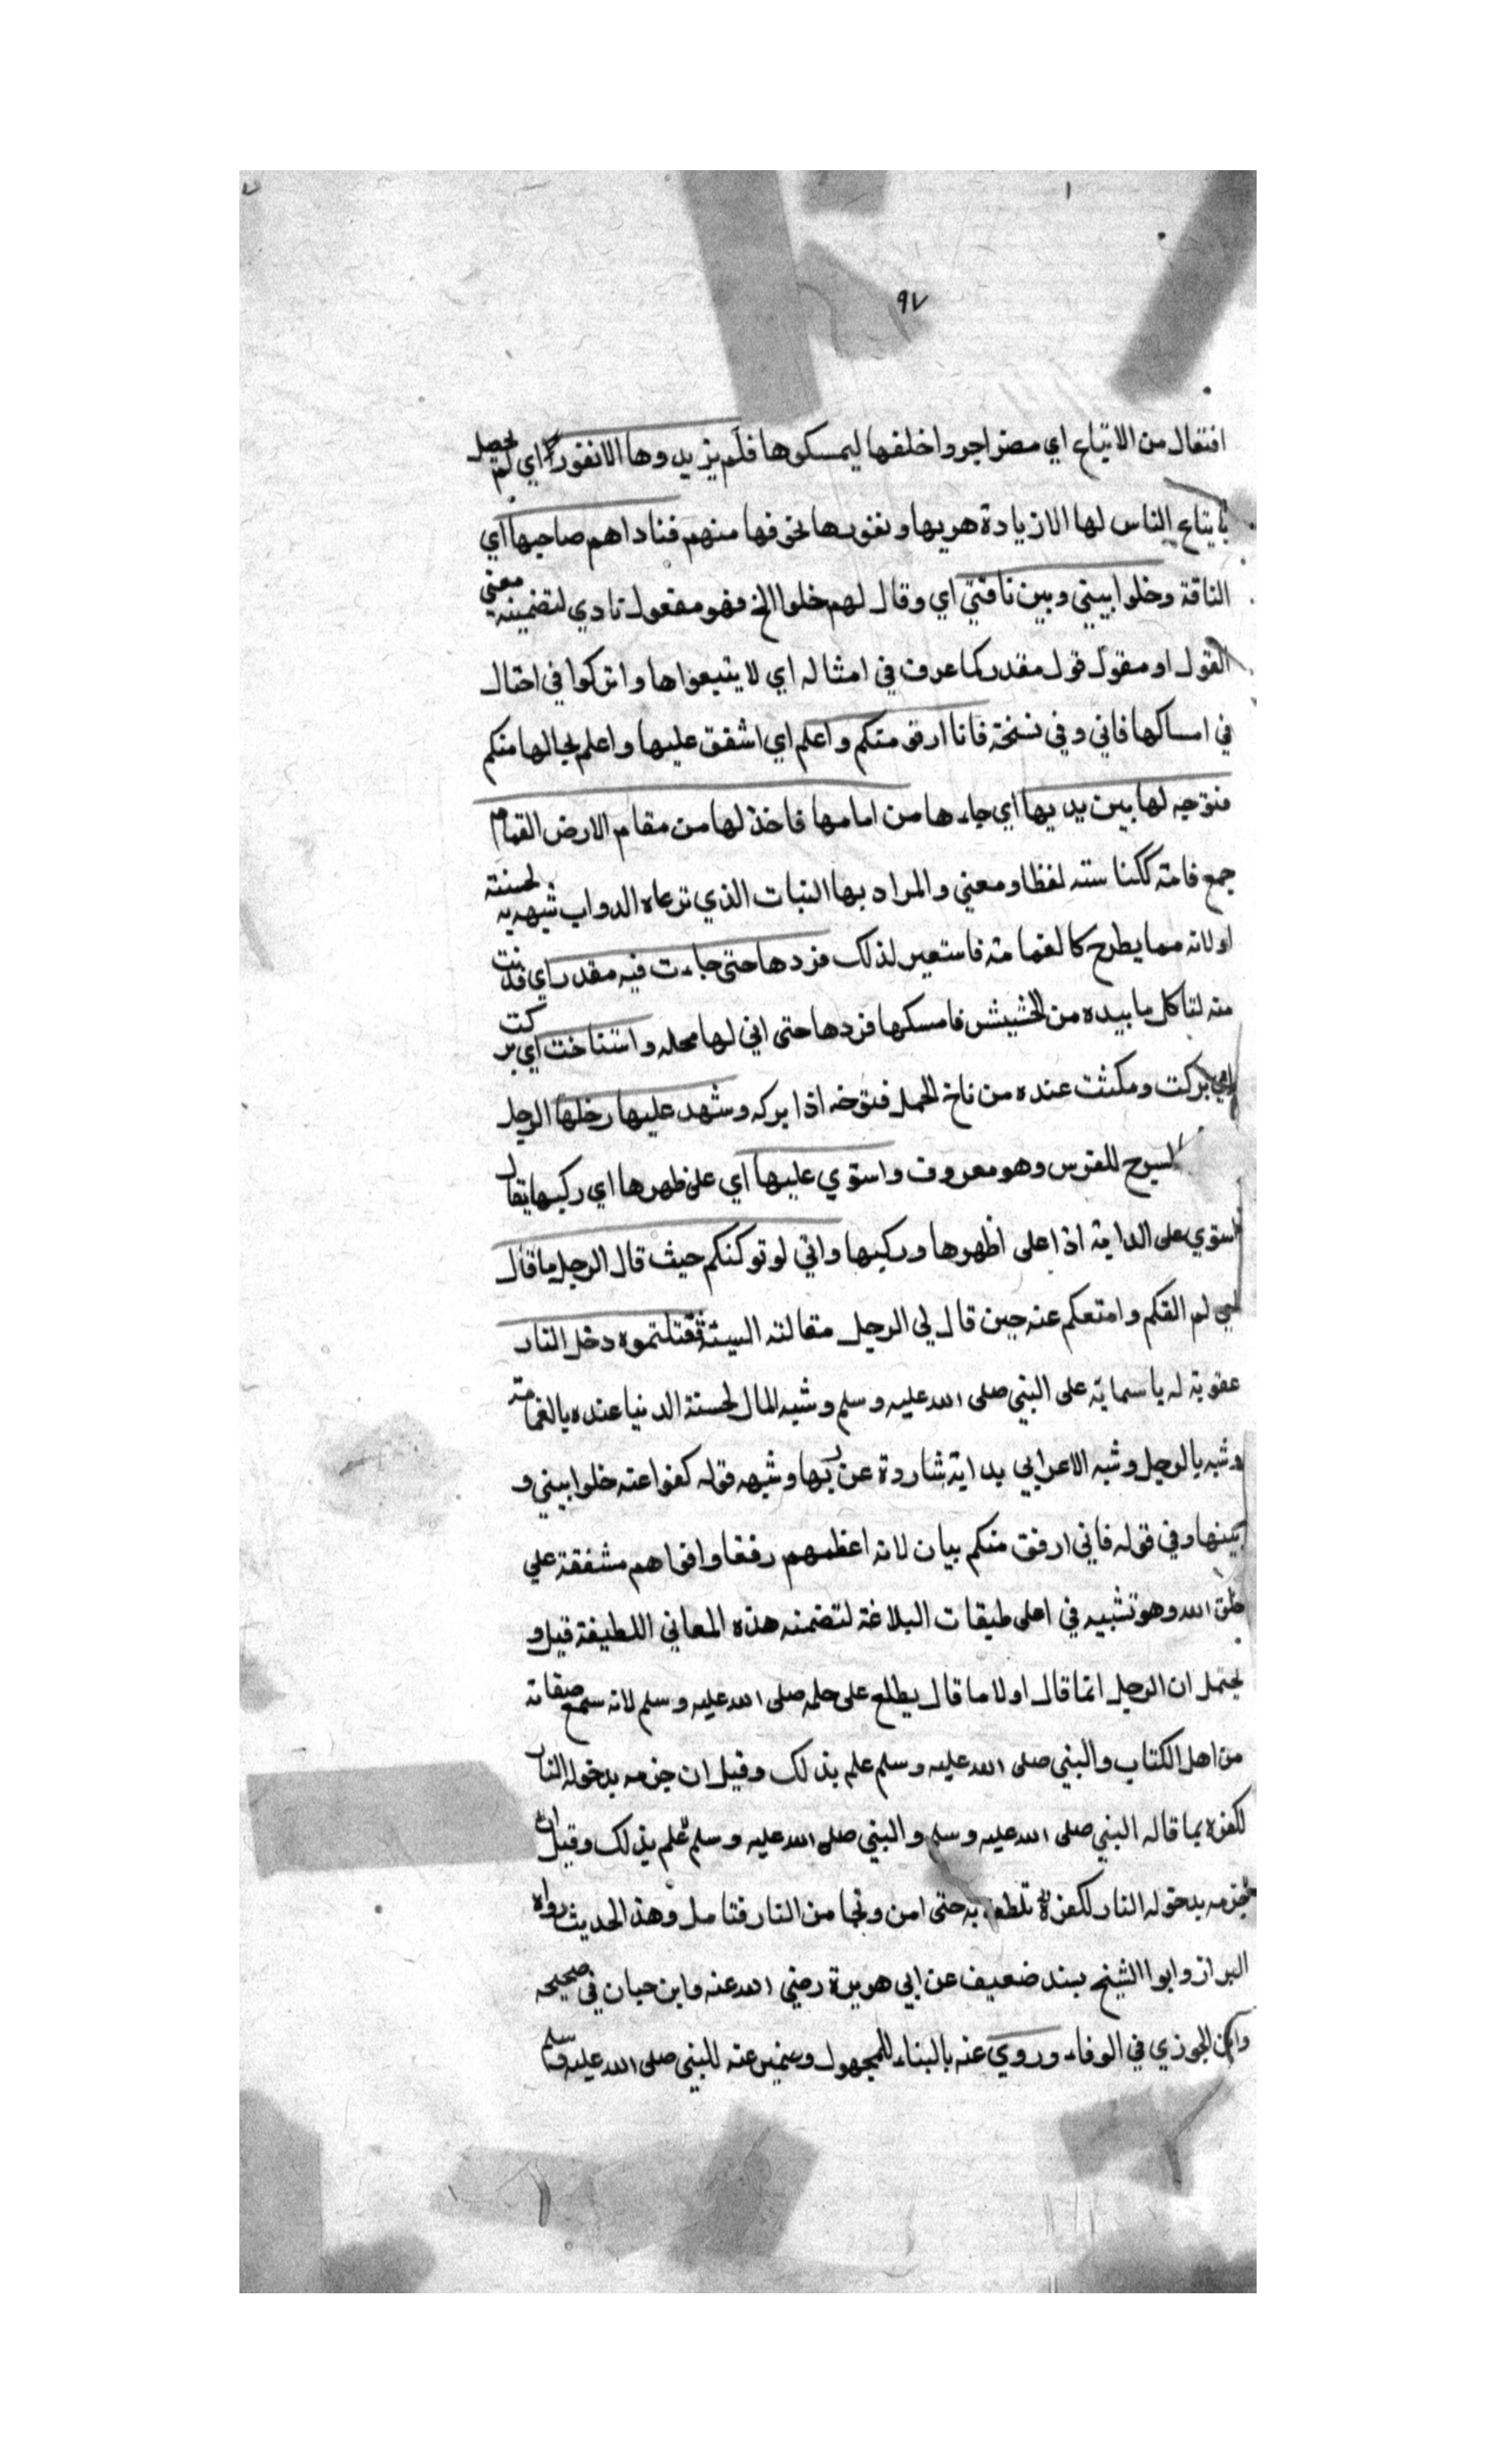 ٩٧
افتعال من الاتباع اي مضوا جروا خلفها ليمسكوها فلم يزيدوها الا نفورا اي لم يحصل
باتباع الناس لها الا زيادة هربها ونفورها لخوفها منهم فناداهم صاحبها اي
الناقة وخلوا بيني وبين ناقتي اي وقال لهم خلوا الخ فهو مفعول نادي لتضمينه معني
القول او مقول قول مقدر كما عرف في امثاله اي لا يتبعواها واتركوا في احتال
في امساكها فاني وفي نسخة فانا ارق منكم واعلم اي اشفق عليها واعلم بحالها منكم
فتوجه لها بين يديها اي جاءها من امامها فاخذ لها من مقام الارض القمام
جمع قامة ككناسته لفظا ومعني والمراد بها النبات الذي ترعاه الدواب شبهه به لحسنته
او لانه مما يطرح كالقمامة فاستعير لذلك فردها حتى جاءت فيه مقدر اي فدنت
منه لتاكل ما بيده من الحشيش فامسكها فردها حتى اني لها محله واستناخت اي بركت
اي بركت ومكثت عنده من ناخ الجمل فتوخه اذا بركه وشهد عليها رحلها الرحل
كالسرج للفرس وهو معروف واستوي عليها اي على ظهرها اي ركبها يقال
استوي على الدابة اذا على اظهرها وركبها واني لو توكنكم حيث قال الرجل ما قال
اي لم القكم وامتعكم عنه حين قال لي الرجل مقالته السيئة فقتلتموه دخل النار
عقوبة له باسمائه على النبي صلى الله عليه وسلم وشبه المال لحسنة الدنيا عنده بالقمامة
وشبه بالرجل وشبه الاعرابي بدابة شاردة عن ربها وشبهه قوله كفوا عنه خلوا بيني و
بينها وفي قوله فاني ارفق منكم بيان لانه اعظمهم رفقا واقواهم مشفقة علي
خلق الله وهو تشبيه في اعلى طبقات البلاغة لتضمنه هذه المعاني اللطيفة قيل و
يحتمل ان الرجل انما قال اولا ما قال يطلع على حلمه صلى الله عليه وسلم لانه سمع صفاته
من اهل الكتاب والنبي صلى الله عليه وسلم علم بذلك وقيل ان جزمه بدخوله النار
لكفره بما قاله النبي صلى الله عليه وسلم والنبي صلى الله عليه وسلم علم بذلك وقيل ان
جزمه بدخوله النار لكفره تلطف به حتى امن ونجا من النار فتامل وهذا الحديث رواه
البزاز وابوا الشيخ بسند ضعيف عن ابي هريرة رضي الله عنه وابن حبان في صحيحه
وابن الجوزي في الوفاء وروي عنه بالبناء للمجهول وضمير عنه للنبي صلى الله عليه وسلم